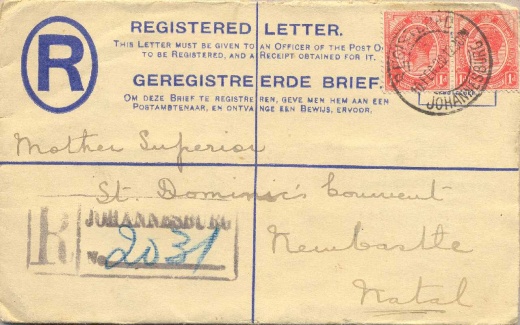 R
REGISTERED LETTER.
THIS LETTER MUST BE GIVEN TO AN OFFICER OF THE POST O
TO BE REGISTERED, AND A RECEIPT OBTAINED FOR IT.
GEREGISTREERDE BRIEF.
OM DEZE BRIEF TE REGISTREREN, GEVE MEN HEM AAN EEN
POSTAMBTENAAR, EN ONTVANGE EEN BEWIJS, ERVOOR.
JOHANNESBURG
Mother Superior
St. Dominic's Convent
Newcastle
Natal
R
JOHANNESBURG
No 2031